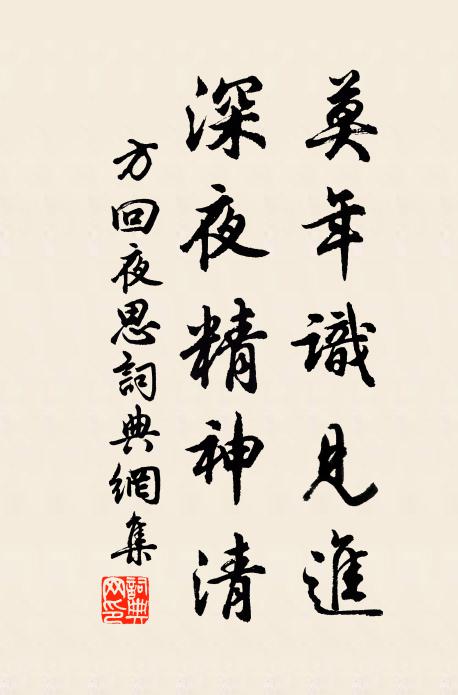 莫年識見進
深夜精神清
方回夜思詞典網集
詞典網印